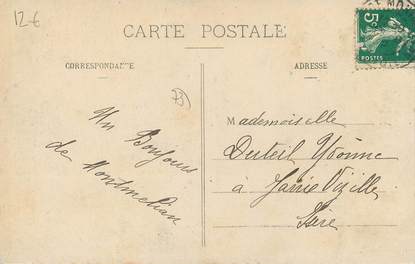 12 €
CARTE POSTALE
CORRESPONDANCE
ADRESSE
73
5c
POSTES
Un Bonjour
de Montmelian
Mademoiselle
Duteil Yvonne
à Jarrie Vizille
Isère